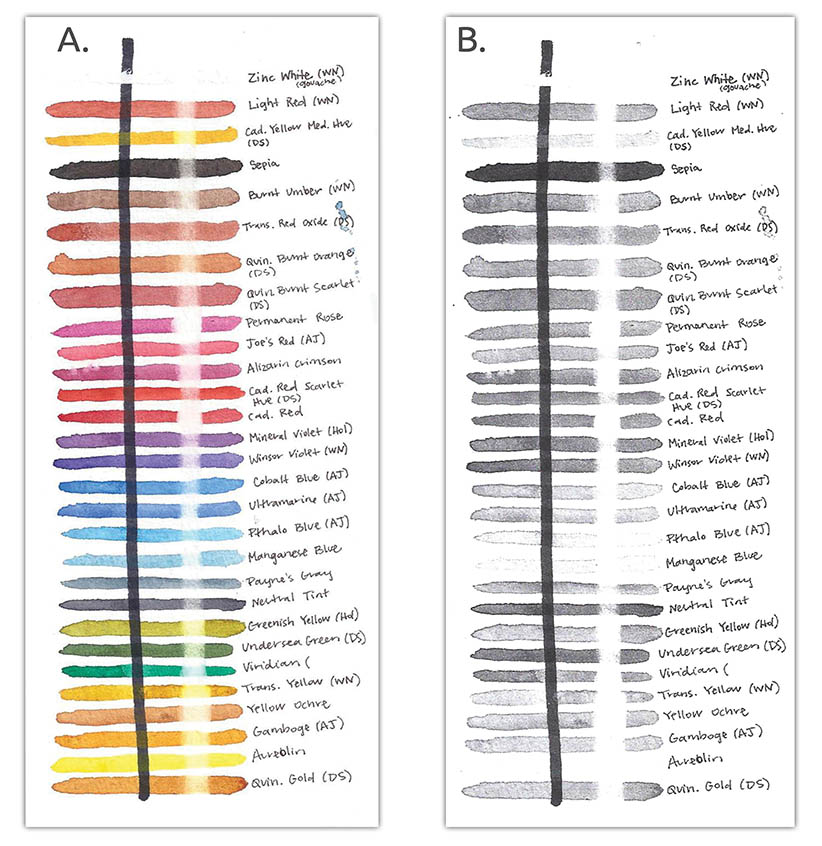 A.
Zinc White (WN)
(gouache)
Light Red (WN)
Cad. Yellow Med. Hue
(DS)
Sepia
Burnt Umber (WN)
Trans. Red Oxide (DS)
Quin. Burnt Orange
(DS)
Quin. Burnt Scarlet
(DS)
Permanent Rose
Joe's Red (AJ)
Alizarin Crimson
Cad. Red Scarlet
Hue (DS)
Cad. Red
Mineral Violet (Hol)
Winsor Violet (WN)
Cobalt Blue (AJ)
Ultramarine (AJ)
Pthalo Blue (AJ)
Manganese Blue
Payne's Gray
Neutral Tint
Greenish Yellow (Hol)
Undersea Green (DS)
Viridian (
Trans. Yellow (WN)
Yellow Ochre
Gamboge (AJ)
Aureolin
Quin. Gold (DS)
B.
Zinc White (WN)
(gouache)
Light Red (WN)
Cad. Yellow Med. Hue
(DS)
Sepia
Burnt Umber (WN)
Trans. Red Oxide (DS)
Quin. Burnt Orange
(DS)
Quin. Burnt Scarlet
(DS)
Permanent Rose
Joe's Red (AJ)
Alizarin Crimson
Cad. Red Scarlet
Hue (DS)
Cad. Red
Mineral Violet (Hol)
Winsor Violet (WN)
Cobalt Blue (AJ)
Ultramarine (AJ)
Pthalo Blue (AJ)
Manganese Blue
Payne's Gray
Neutral Tint
Greenish Yellow (Hol)
Undersea Green (DS)
Viridian (
Trans. Yellow (WN)
Yellow Ochre
Gamboge (AJ)
Aureolin
Quin. Gold (DS)